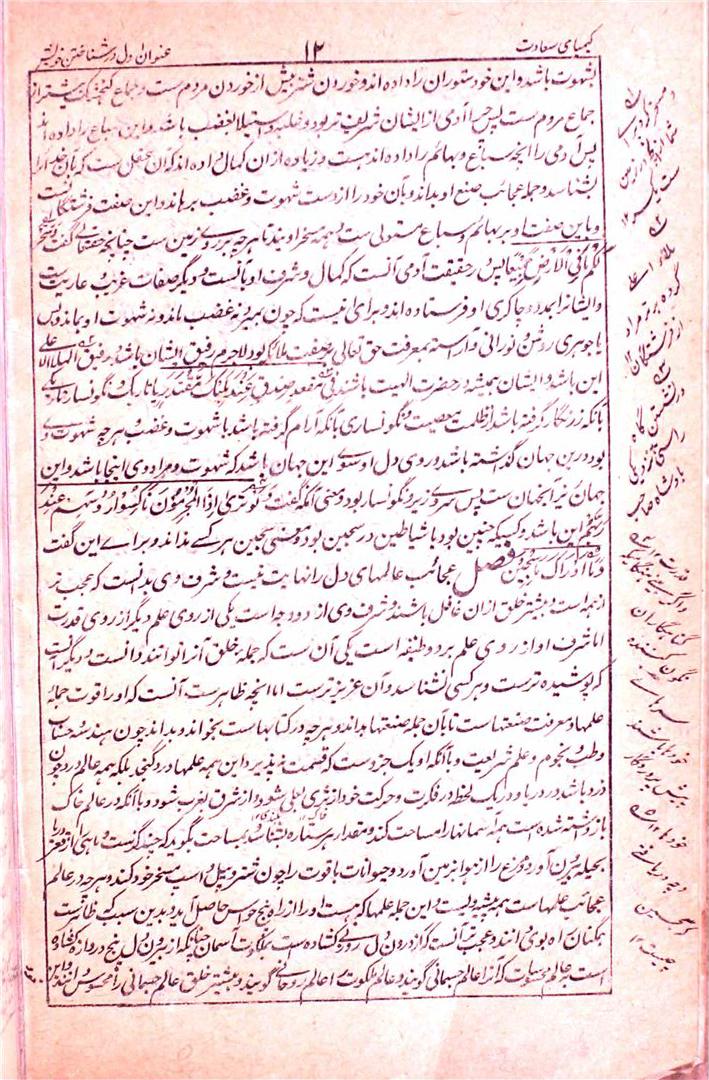 کیمیای سعادت
۱۲
عنوان اول در شناختن خویش
بشهوت باشد و این خود ستوران را داده اند و خوردن شتر بیش از خوردن مردم ست و جماع گنجشک بیشتر از
جماع مردم ست پس چرا آدمی از ایشان شریف تر بود و غلبه و استیلا بغضب باشد و این سباع را داده اند
پس آدمی را آنچه سباع و بهائم را داده اند هست و زیاده از ان کمال داده اند که آن عقل ست که بآن خدا را
بشناسد و جمله عجائب صنع او بداند و بآن خود را از دست شهوت و غضب برهاند و این صفت فرشتگان ست
و باین صفت او بر بهائم و سباع مستولی ست و همه مسخر او یند تا هر چه بر روی زمین ست چنانچه حقتعالی گفت وسخر
لکم ما فی الارض جمیعا پس حقیقت آدمی آنست که کمال و شرف او بآنست و دیگر صفات غریب و عاریت ست
و ایشانرا بمدد و چاکری او فرستاده اند و برای نیست که چون بمیرد نه غضب ماند و نه شهوت او بماند و بس
یا جوهری روشن و نورانی و آراسته بمعرفت حق تعالی بصفت ملائکه بود لاجرم رفیق ایشان باشد و رفیق الملأ الاعلی
این باشد و ایشان همیشه در حضرت الهیت باشند فی مقعد صدق عند ملیک مقتدر یا تاریک و نگونسار تاریکی
بآنکه زنگار گرفته باشد از ظلمت معصیت و نگونساری بآنکه آرام گرفته باشد با شهوت و غضب هر چه شهوت وی
بود درین جهان گذشته باشد و روی دل او سوی این جهان باشد که شهوت و مراد وی اینجا باشد و این
جهان زیر آنجهان ست پس سر وی زیر و نگونسار بود و معنی آنکه گفت ولو تری اذ المجرمون ناکسوا رؤسهم عند
ربهم این باشد و کسیکه چنین بود با شیاطین در سجین بود و معنی سجین هر کسے نداند و براے این گفت
وما ادراک ما سجین فصل عجائب عالمهای دل را نهایت نیست و شرف وی بدانست که عجب تر
از همه است و بیشتر خلق ازان غافل باشند و شرف وی از دو درجه است یکی از روی علم و دیگر از روی قدرت
اما شرف او از روی علم بر دو طبقه است یکی آن ست که جمله خلق آنرا توانند دانست و دیگر آنست
که پوشیده ترست و هر کسی نشناسد و آن عزیز ترست اما آنچه ظاهرست آنست که او را قوت جمله
علمها و معرفت صنعتهاست تا بآن جمله صنعتها بداند و هر چه در کتابهاست بخواند و بداند چون هندسه و حساب
و طب و نجوم و علم شریعت و با آنکه او یک جزوست که قسمت نپذیرد این همه علمها در وی گنجد بلکه همه عالم در وی چون
ذره باشد در دریا و در یک لحظه در فکرت و حرکت خود از ثری بعلی شود و از شرق بغرب شود و با آنکه در عالم خاک
بازداشته شده است همه آسمانها را مساحت کند و مقدار هر ستاره بشناسد و بمساحت بگوید که چند گزست و ماهی را از قعر دریا
بحیله بیرون آورد و مرغ را از هوا بزمین آورد و حیوانات با قوت را چون شتر و پیل و اسپ مسخر خود کند و هر چه در عالم
عجائب علمهاست همه پیشه اوست و این جمله علمها که هست او را از راه پنج حواس حاصل آید و بدین سبب که ظاهرست
همگنان راه بوی دانند و عجب آنست که از درون دل روزنی گشاده ست بملکوت آسمان چنانکه از بیرون دل پنج دروازه گشاده
است بعالم محسوسات که آنرا عالم جسمانی گویند و عالم ملکوت را عالم روحانی گویند و بیشتر خلق عالم جسمانی را محسوس دانند و این